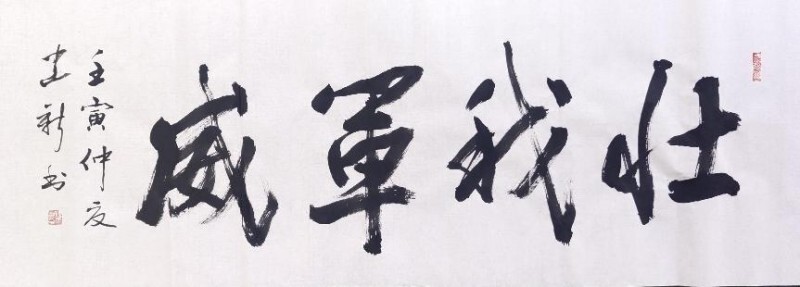 壮我軍威
壬寅仲夏
建新书